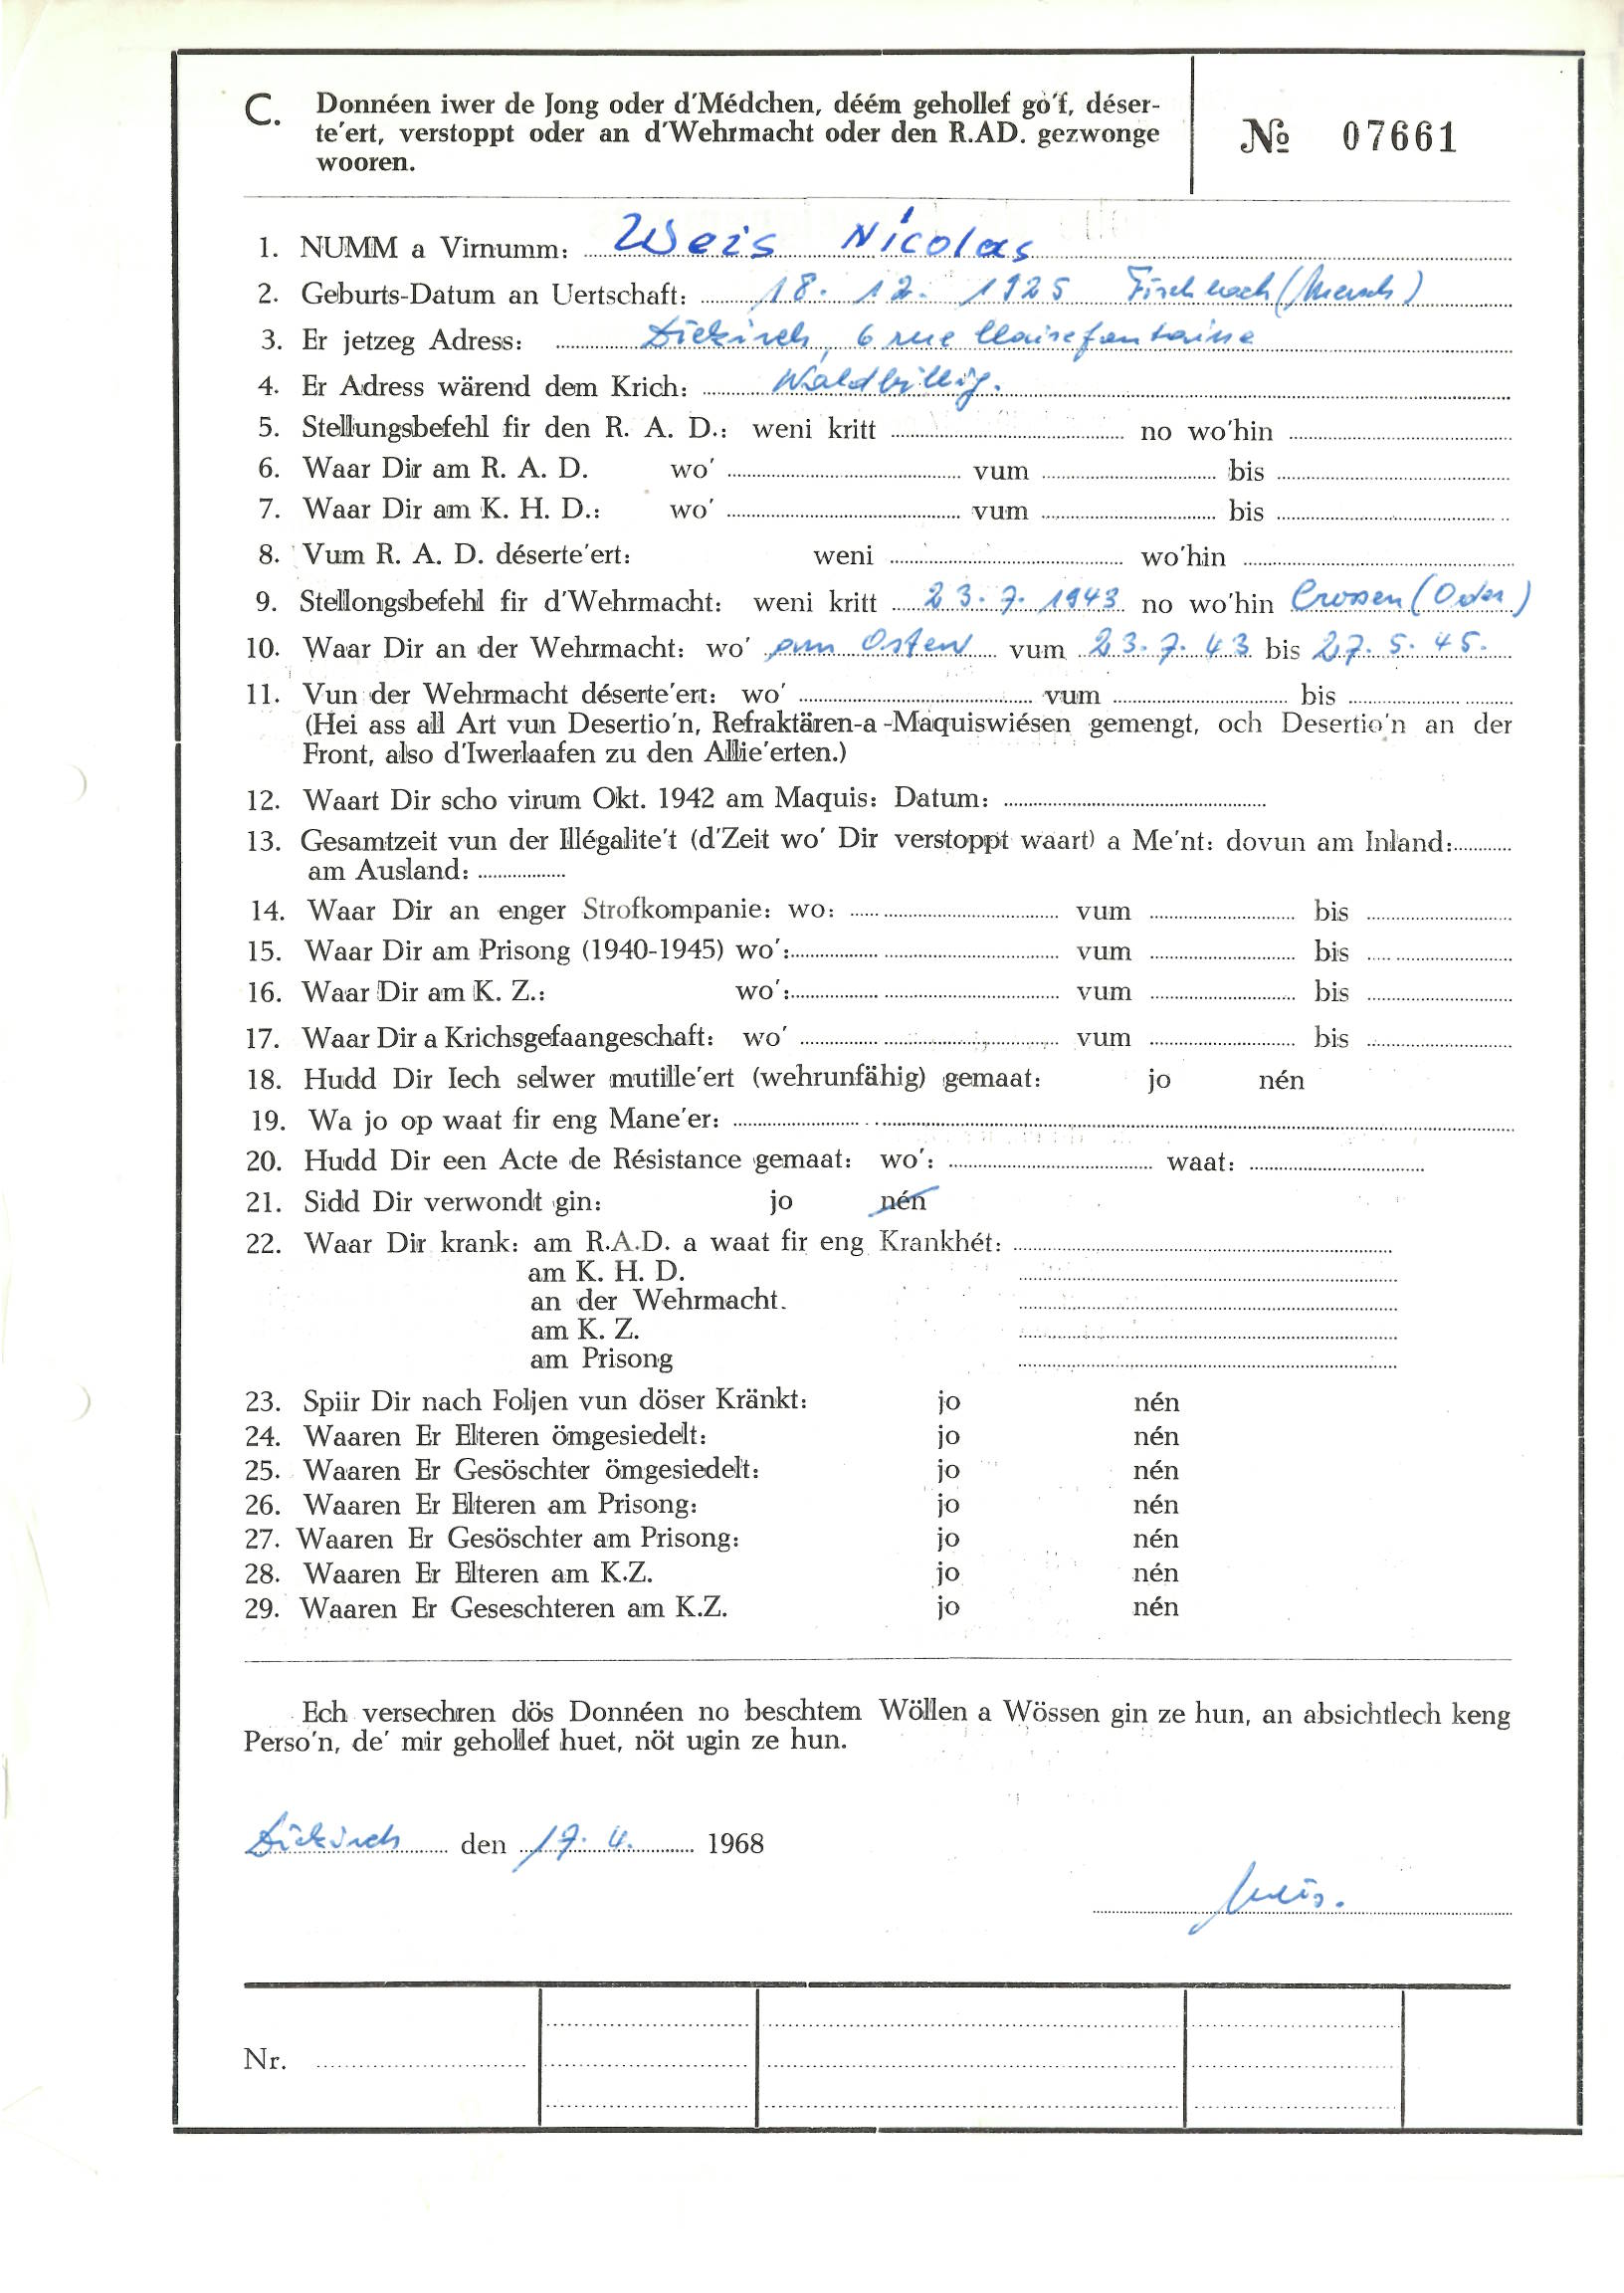 C. Donnéen iwer de Jong oder d'Médchen, déém gehollef go'f, déser-
te'ert, verstoppt oder an d'Wehrmacht oder den R.AD. gezwonge
wooren.
No 07661
1. NUMM a Virnumm: Weis Nicolas
2. Geburts-Datum an Uertschaft: 18. 12. 1925 Fischbach (Mersch)
3. Er jetzeg Adress: Diekirch, 6 rue Clairefontaine
4. Er Adress wärend dem Krich: Waldbillig.
5. Stellungsbefehl fir den R. A. D.: weni kritt no wo'hin
6. Waar Dir am R. A. D. wo' vum bis
7. Waar Dir am K. H. D.: wo' vum bis
8. Vum R. A. D. déserte'ert: weni wo'hin
9. Stellongsbefehl fir d'Wehrmacht: weni kritt 23. 7. 1943 no wo'hin Crossen (Oder)
10. Waar Dir an der Wehrmacht: wo' am Osten vum 23. 7. 43 bis 27. 5. 45.
11. Vun der Wehrmacht déserte'ert: wo' vum bis
(Hei ass all Art vun Desertio'n, Refraktären-a-Maquiswiésen gemengt, och Desertio'n an der
Front, also d'Iwerlaafen zu den Allie'erten.)
12. Waart Dir scho virum Okt. 1942 am Maquis: Datum:
13. Gesamtzeit vun der Illégalite't (d'Zeit wo' Dir verstoppt waart) a Me'nt: dovun am Inland:
am Ausland:
14. Waar Dir an enger Strofkompanie: wo: vum bis
15. Waar Dir am Prisong (1940-1945) wo': vum bis
16. Waar Dir am K. Z.: wo': vum bis
17. Waar Dir a Krichsgefaangeschaft: wo' vum bis
18. Hudd Dir Iech selwer mutille'ert (wehrunfähig) gemaat: jo nén
19. Wa jo op waat fir eng Mane'er:
20. Hudd Dir een Acte de Résistance gemaat: wo': waat:
21. Sidd Dir verwondt gin: jo nén
22. Waar Dir krank: am R.A.D. a waat fir eng Krankhét:
am K. H. D.
an der Wehrmacht.
am K. Z.
am Prisong
23. Spiir Dir nach Foljen vun döser Kränkt: jo nén
24. Waaren Er Elteren ömgesiedelt: jo nén
25. Waaren Er Gesöschter ömgesiedelt: jo nén
26. Waaren Er Elteren am Prisong: jo nén
27. Waaren Er Gesöschter am Prisong: jo nén
28. Waaren Er Elteren am K.Z. jo nén
29. Waaren Er Geseschteren am K.Z. jo nén
Ech versechren dös Donnéen no beschtem Wöllen a Wössen gin ze hun, an absichtlech keng
Perso'n, de' mir gehollef huet, nöt ugin ze hun.
Diekirch den 17. 4. 1968
Weis.
Nr.